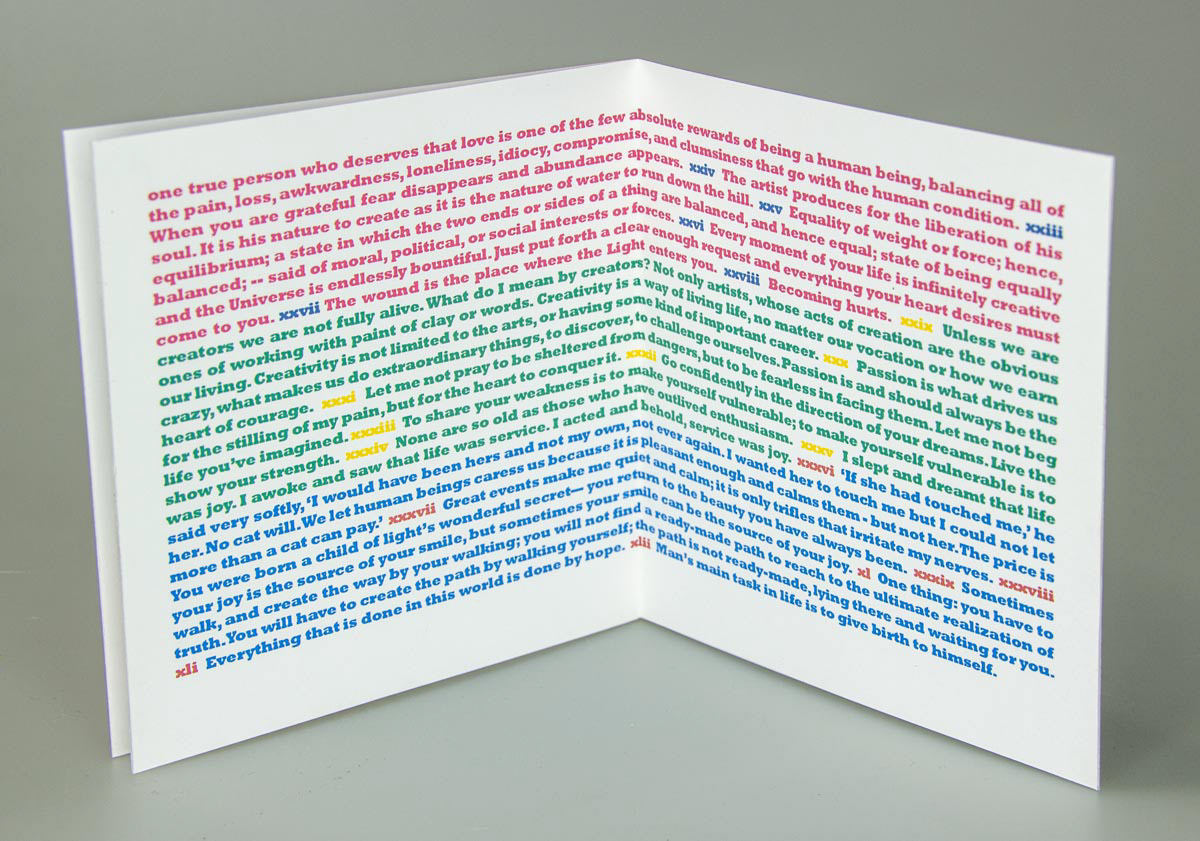 one true person who deserves that love is one of the few absolute rewards of being a human being, balancing all of
the pain, loss, awkwardness, loneliness, idiocy, compromise, and clumsiness that go with the human condition. xxiii
When you are grateful fear disappears and abundance appears. xxiv The artist produces for the liberation of his
soul. It is his nature to create as it is the nature of water to run down the hill. xxv Equality of weight or force; hence,
equilibrium; a state in which the two ends or sides of a thing are balanced, and hence equal; state of being equally
balanced; -- said of moral, political, or social interests or forces. xxvi Every moment of your life is infinitely creative
and the Universe is endlessly bountiful. Just put forth a clear enough request and everything your heart desires must
come to you. xxvii The wound is the place where the Light enters you. xxviii Becoming hurts. xxix Unless we are
creators we are not fully alive. What do I mean by creators? Not only artists, whose acts of creation are the obvious
ones of working with paint of clay or words. Creativity is a way of living life, no matter our vocation or how we earn
our living. Creativity is not limited to the arts, or having some kind of important career. xxx Passion is what drives us
crazy, what makes us do extraordinary things, to discover, to challenge ourselves. Passion is and should always be the
heart of courage. xxxi Let me not pray to be sheltered from dangers, but to be fearless in facing them. Let me not beg
for the stilling of my pain, but for the heart to conquer it. xxxii Go confidently in the direction of your dreams. Live the
life you've imagined. xxxiii To share your weakness is to make yourself vulnerable; to make yourself vulnerable is to
show your strength. xxxiv None are so old as those who have outlived enthusiasm. xxxv I slept and dreamt that life
was joy. I awoke and saw that life was service. I acted and behold, service was joy. xxxvi 'If she had touched me,' he
said very softly, 'I would have been hers and not my own, not ever again. I wanted her to touch me but I could not let
her. No cat will. We let human beings caress us because it is pleasant enough and calms them - but not her. The price is
more than a cat can pay.' xxxvii Great events make me quiet and calm; it is only trifles that irritate my nerves. xxxviii
You were born a child of light's wonderful secret— you return to the beauty you have always been. xxxix Sometimes
your joy is the source of your smile, but sometimes your smile can be the source of your joy. xl One thing: you have to
walk, and create the way by your walking; you will not find a ready-made path to reach to the ultimate realization of
truth. You will have to create the path by walking yourself; the path is not ready-made, lying there and waiting for you.
xli Everything that is done in this world is done by hope. xlii Man's main task in life is to give birth to himself.